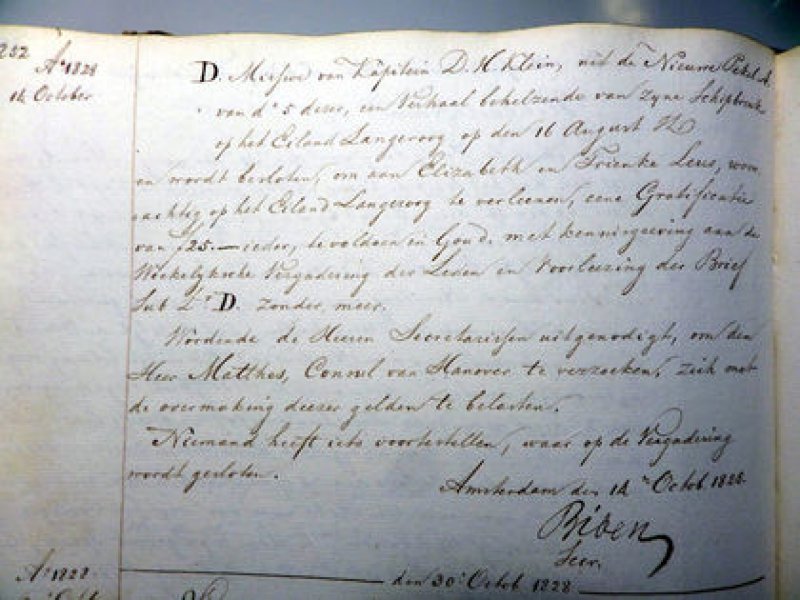 252
A° 1828
14 October
D. Missive van Kapitein D. H. Klein, uit de Nieuwe Pekel A.
van d° 5 dezer, een Verhaal behelzende van zyne Schipbreuk
op het Eiland Langeroog op den 16 August
en wordt besloten, om aan Elizabeth en Trienke Leus, woon
achtig op het Eiland Langeroog te verleenen, eene Gratificatie
van ƒ25.— ieder, te voldoen in Goud, met kennisgeving aan de
Wekelyksche Vergadering der Leden en voorlezing der Brief
Sub L.ᵃ D. zonder meer.
Wordende de Heeren Secretarissen uitgenodigt, om den
Heer Matthes, Consul van Hanover te verzoeken, zich met
de overmaking deezer gelden te belasten.
Niemand heeft iets voortestellen, waar op de Vergadering
wordt gesloten.
Amsterdam den 14 Octob 1828.
Secr.
A° 1828
den 30 Octob. 1828